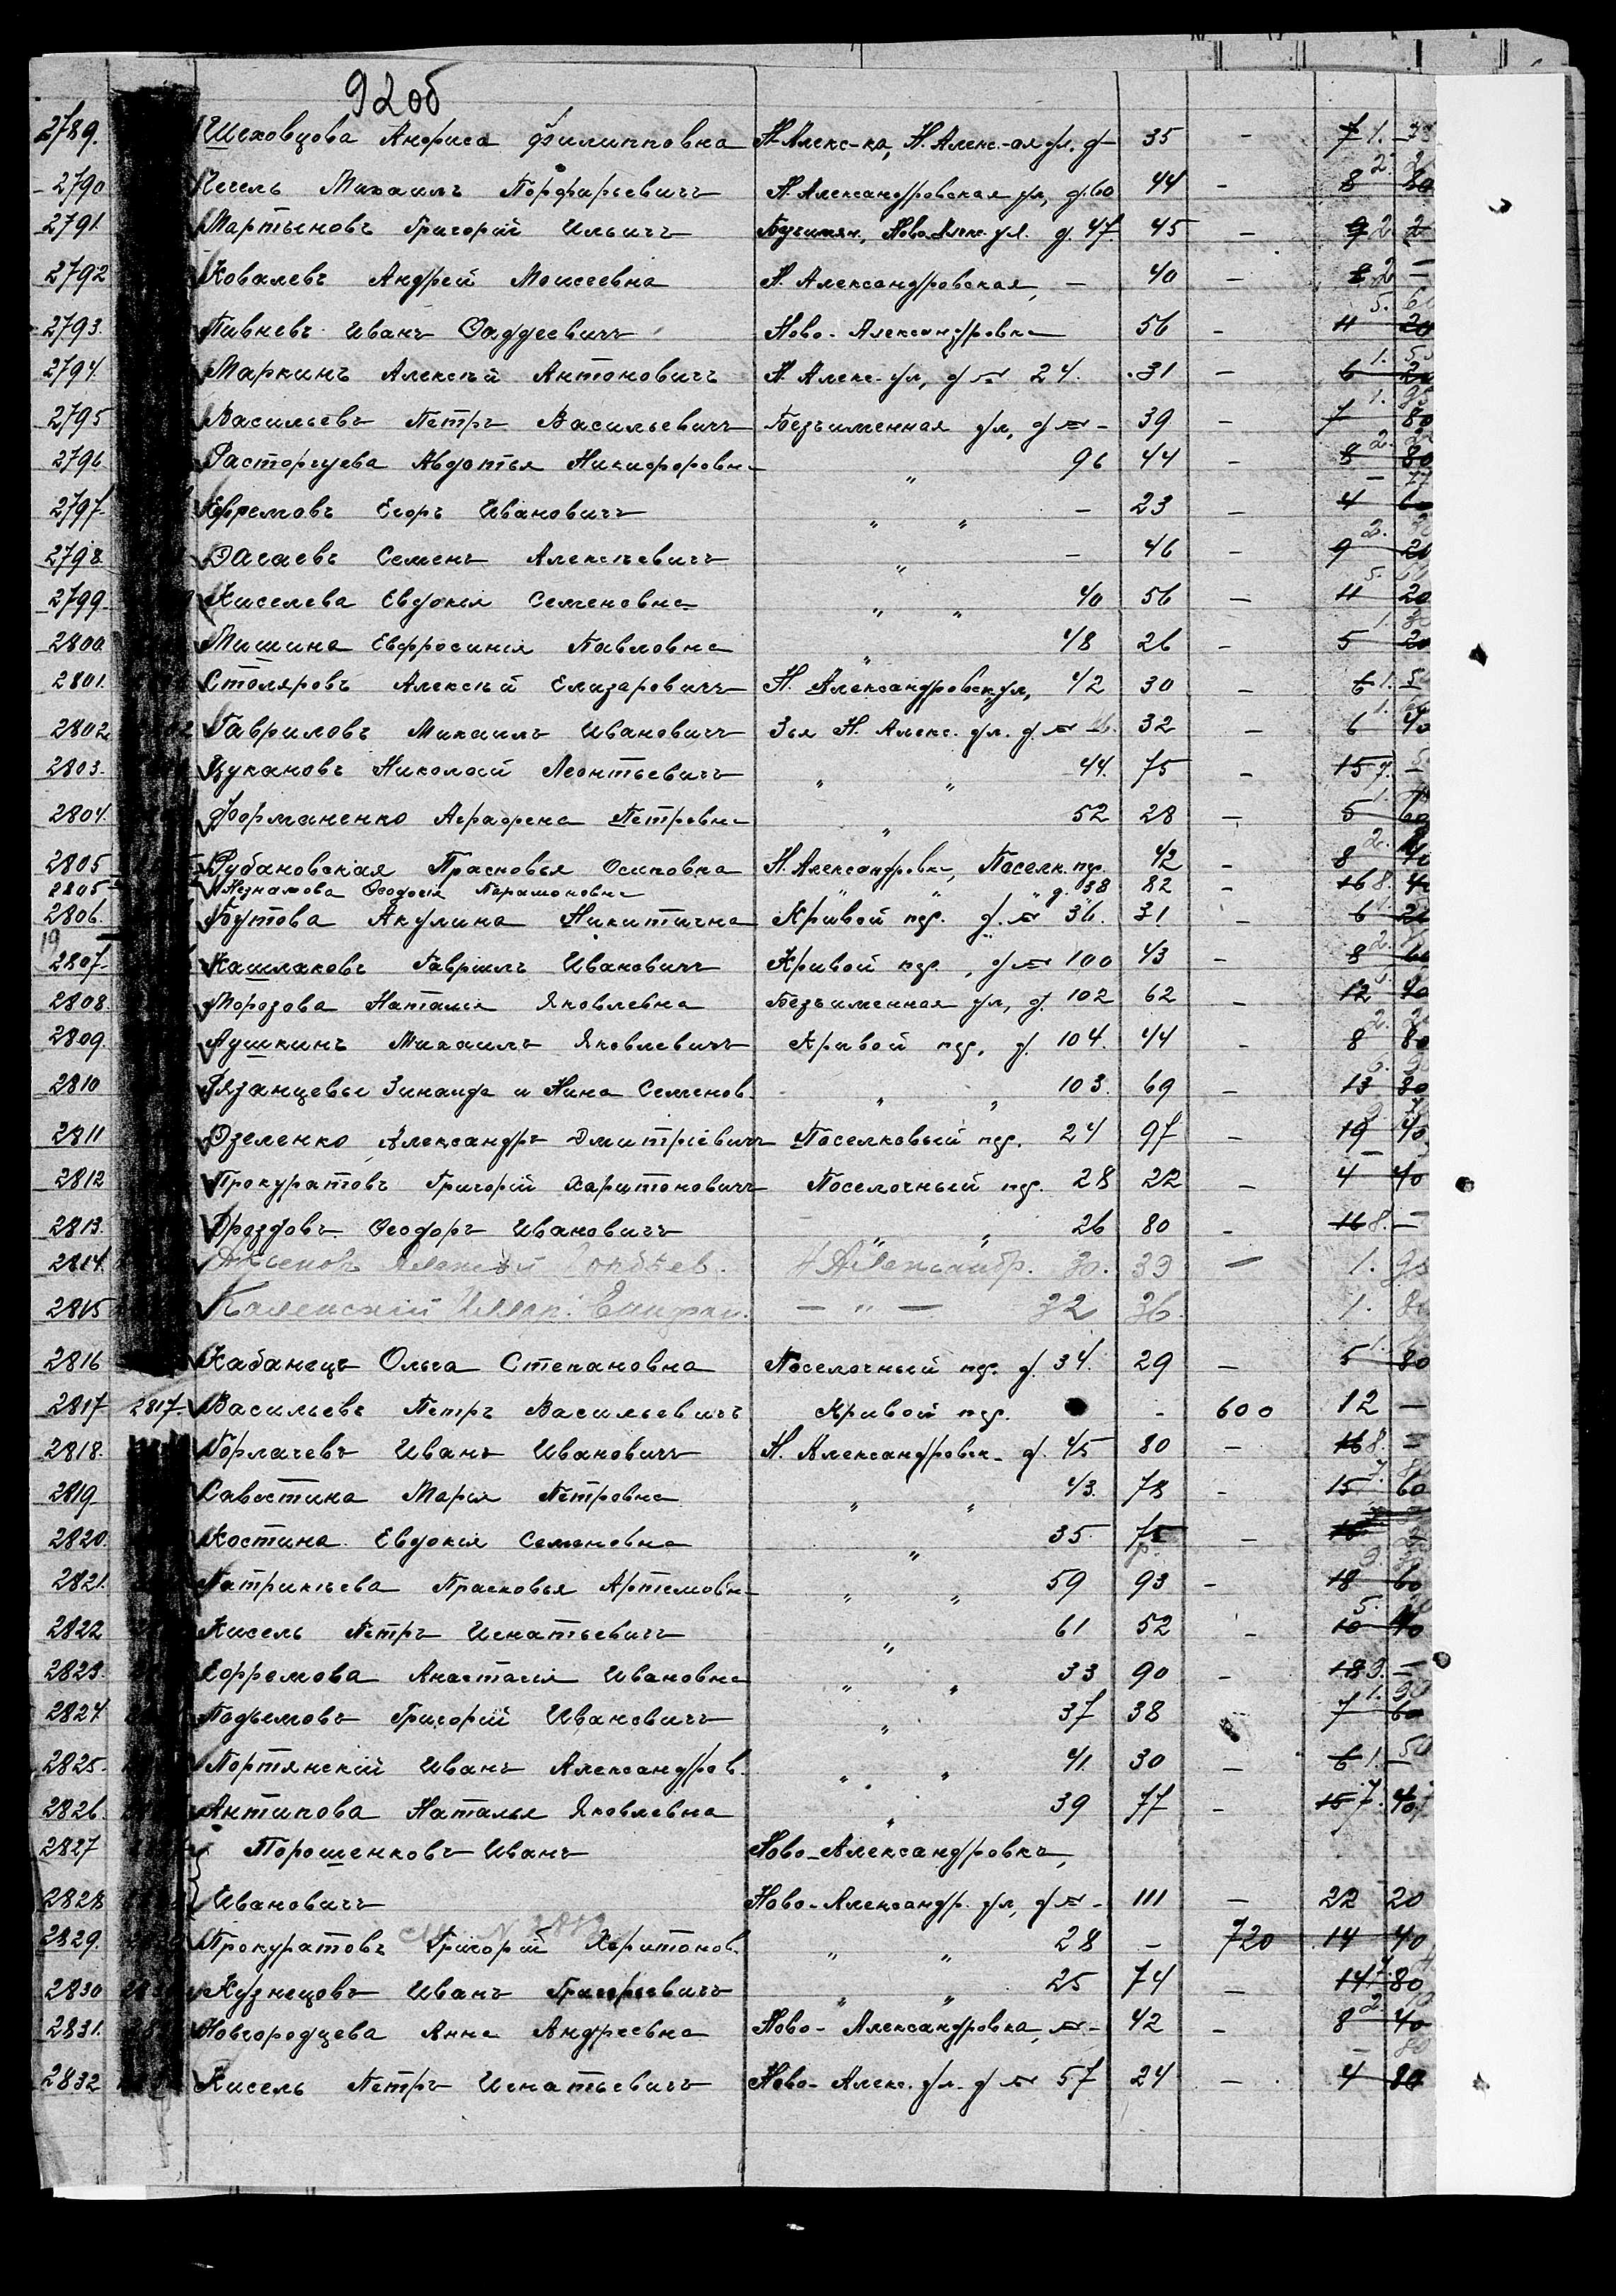 92 об
2789. Шеховцова Анфиса Филипповна Н-Алекс-ка, Н. Алекс.-ая ул. д- 35 - 7 1.
2790 Чегель Михаилъ Порфирьевичъ Н. Александровская ул, д. 60 44 - 8 2. 80
2791 Мартыновъ Григорій Ильичъ Ново-Алек. ул. д. 47. 45 - 9 2.
2792 Ковалевъ Андрей Моисеевна Н. Александровская, - 40 - 8 2 -
2793. Пивневъ Иванъ Фаддеевичъ Ново-Александровка 56 - 11 5. 20
2794. Маркинъ Алексѣй Антоновичъ Н. Алекс. ул, д № 24. 31 - 6 1.
2795 Васильевъ Петръ Васильевичъ Безъименная ул, д № - 39 - 7 1. 80
2796 Расторгуева Авдотья Никифоровна " 96 44 - 8 2. 80
2797 Ефремовъ Егоръ Ивановичъ " " - 23 - 4 - 60
2798. Дагаевъ Семенъ Алексѣевичъ " - 46 - 9 2. 20
2799. Киселева Евдокія Семеновна " " 40 56 - 11 5. 20
2800. Мишина Евфросинія Павловна " 48 26 - 5 1. 20
2801. Столяровъ Алексѣй Елизаровичъ Н. Александровск ул, 42 30 - 6 1.
2802 Гавриловъ Михаилъ Ивановичъ 3ья Н. Алекс. ул. д. № 32 - 6 1. 40
2803. Цукановъ Николай Леонтьевичъ " " 44. 75 - 15 7. -
2804. Форманенко Аграфена Петровна " 52 28 - 5 1. 60
2805 Рубановская Прасковья Осиповна Н. Александровка, Поселк. пер. 42 - 8 2. 40
2805 Незнамова Феодосія Парамоновна " " " д. 38 82 - 16 8. 40
2806. Бутова Акулина Никитична Кривой пер. д. № 36. 31 - 6 20
19
2807. Кашлаковъ Гавріилъ Ивановичъ Кривой пер., д № 100 43 - 8 2. 60
2808. Морозова Наталія Яковлевна Безъименная ул, д. 102 62 - 12 40
2809. Лушкинъ Михаилъ Яковлевичъ Кривой пер, д. 104. 44 - 8 2. 80
2810 Рязанцевы Зинаида и Нина Семенов. " " 103. 69 - 13 6. 80
2811 Озеленко Александръ Дмитріевичъ Поселковый пер. 24 97 - 19 9. 40
2812 Прокуратовъ Григорій Харитоновичъ Поселочный пер. 28 22 - 4 - 40
2813. Дроздовъ Феодоръ Ивановичъ " " 26 80 - 16 8. -
2814. Н Александр. 30. 39 - 1.
2815 Каменскій - " - 32 36. 1. 80
2816 Кабанецъ Ольга Степановна Поселочный пер. д. 34. 29 - 5 1. 80
2817 2817. Васильевъ Петръ Васильевичъ Кривой пер. - 600 12 -
2818. Горлачевъ Иванъ Ивановичъ Н. Александровск- д. 45 80 - 16 8. -
2819 Савостина Марія Петровна " " 43. 78 - 15 7. 60
2820. Костина Евдокія Семеновна " 35 75 -
2821. Патрикѣева Прасковья Артемовна " " 59 93 - 18 9. 60
2822 Кисель Петръ Игнатьевичъ " 61 52 - 10 5. 40
2823. Ефремова Анастасія Ивановна " " 33 90 - 18 9. -
2824 Подъемовъ Григорій Ивановичъ " 37 38 - 7 1. 60
2825. Портянскій Иванъ Александров. " " 41 30 - 6 1. 50
2826. Антипова Наталья Яковлевна " 39 77 - 15 7. 40
2827 Порошенковъ Иванъ Ново-Александровкъ,
2828 Ивановичъ Ново-Александр. ул, д № - 111 - 22 20
2829. Прокуратовъ Григорій Харитонов. " " 28 - 720 14 40
2830 Кузнецовъ Иванъ Григорьевичъ " " 25 74 - 14 7. 80
2831. Новгородцева Анна Андреевна Ново-Александровка, № - 42 - 8 2. 40
2832 Кисель Петръ Игнатьевичъ Ново-Алекс. ул. д № 57 24 - 4 - 80